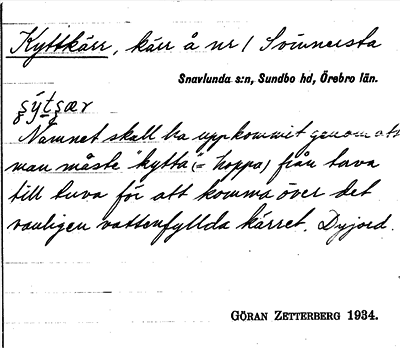 Kyttkärr, kärr å nr 1 Svinnersta
Snavlunda s:n, Sundbo hd, Örebro län.
Namnet skall ha uppkommit genom att
man måste "kytta" (= hoppa) från tuva
till tuva för att komma över det
vanligen vattenfyllda kärret. Dyjord.
GÖRAN ZETTERBERG 1934.